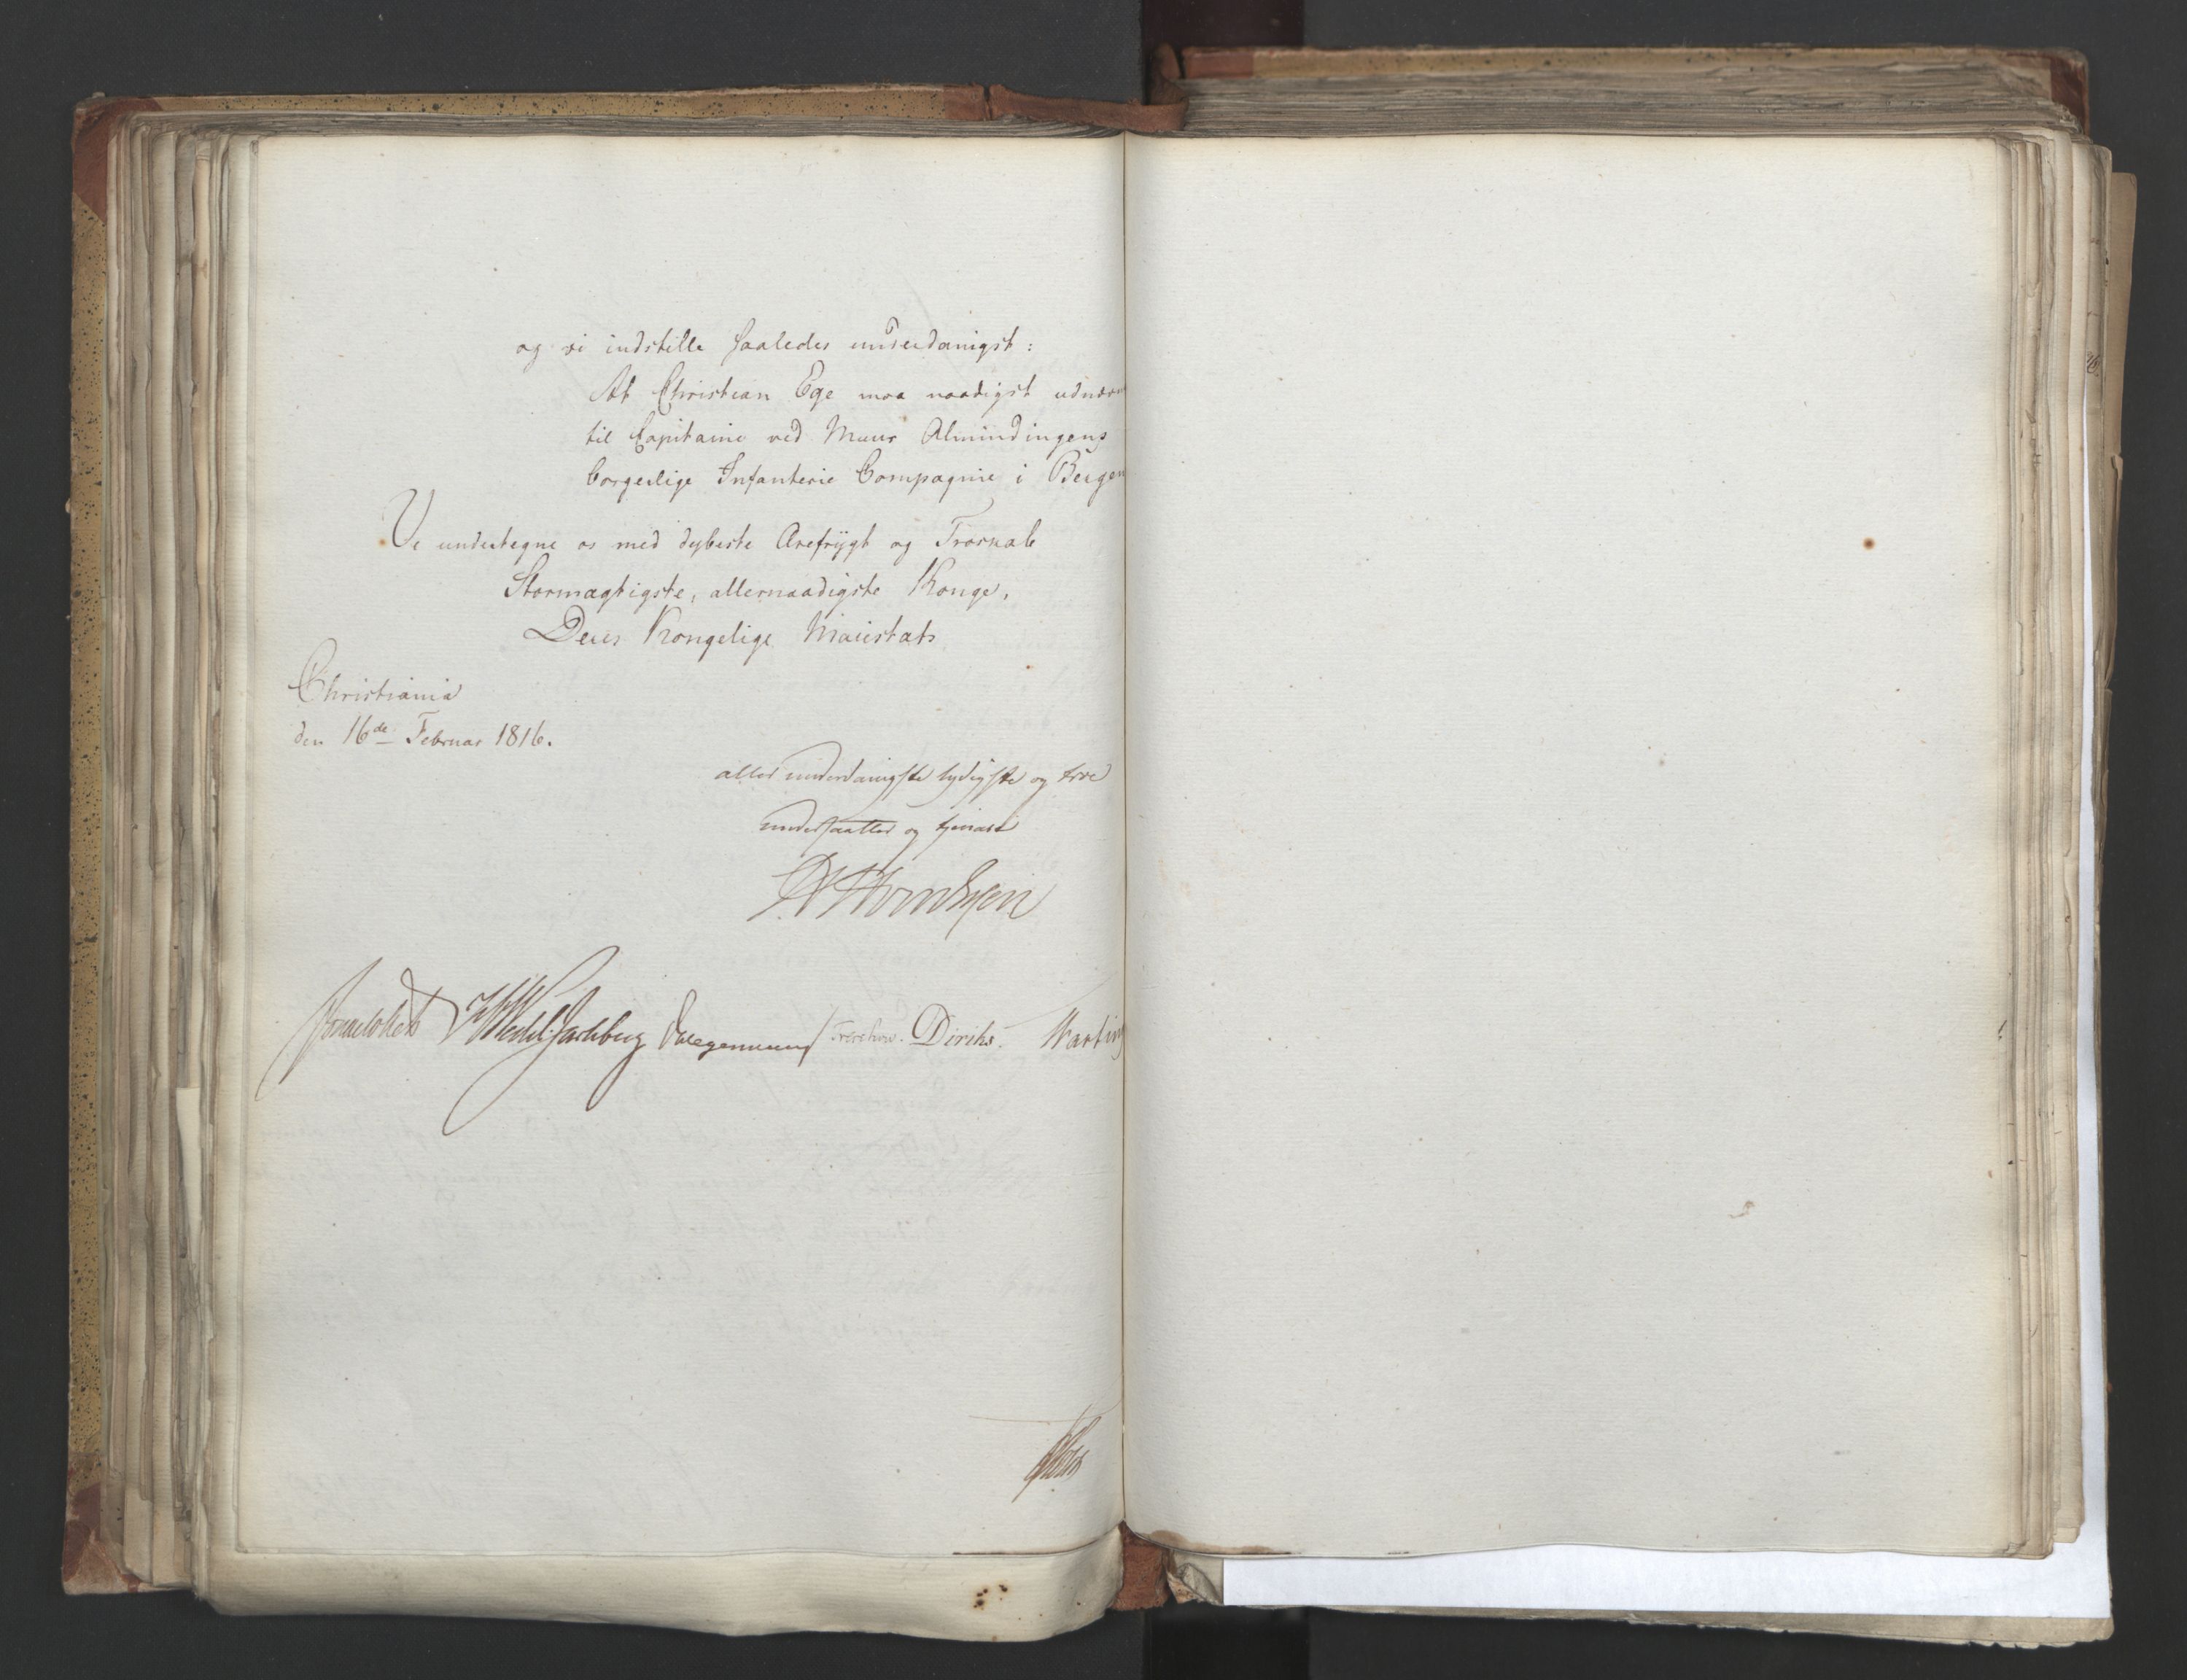 og vi indstille saaledes underdanigst:
At Christian Ege maa naadigst udnævn
til Capitaine ved Muur Almindingens
borgerlige Infanterie Compagnie i Bergen
Vi undertegne os med dybeste Ærefrygt og Troeskab
Stormægtigste, allernaadigste Konge,
Deres Kongelige Maiestæts
Christiania
den 16de Februar 1816.
aller underdanigste lydigste og troe
undersaatter og tjenere
Sommelhielm
Diriks.